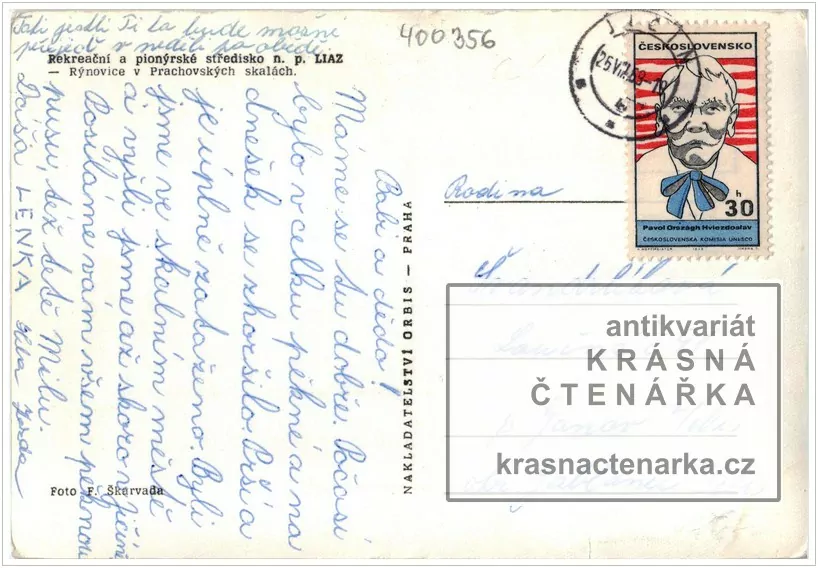 Tati jestli Ti to bude možné
přijeď v neděli po obědě.
400356
Rekreační a pionýrské středisko n. p. LIAZ
— Rýnovice v Prachovských skalách.
Babi a dědo!
Máme se tu dobře. Počasí
bylo v celku pěkné a na
dnešek se zhoršilo. Prší a
je úplně zataženo. Byli
jsme ve skalním městě
a vyšli jsme až skoro
Posíláme vám všem pěknou
pusu, též tetě Milu.
Dáša LENKA Jarda
Foto F. Škarvada
NAKLADATELSTVÍ ORBIS — PRAHA
JIČÍN
ČESKOSLOVENSKO
30 h
Pavol Országh Hviezdoslav
ČESKOSLOVENSKÁ KOMISIA UNESCO
Rodina
antikvariát
KRÁSNÁ
ČTENÁŘKA
krasnactenarka.cz